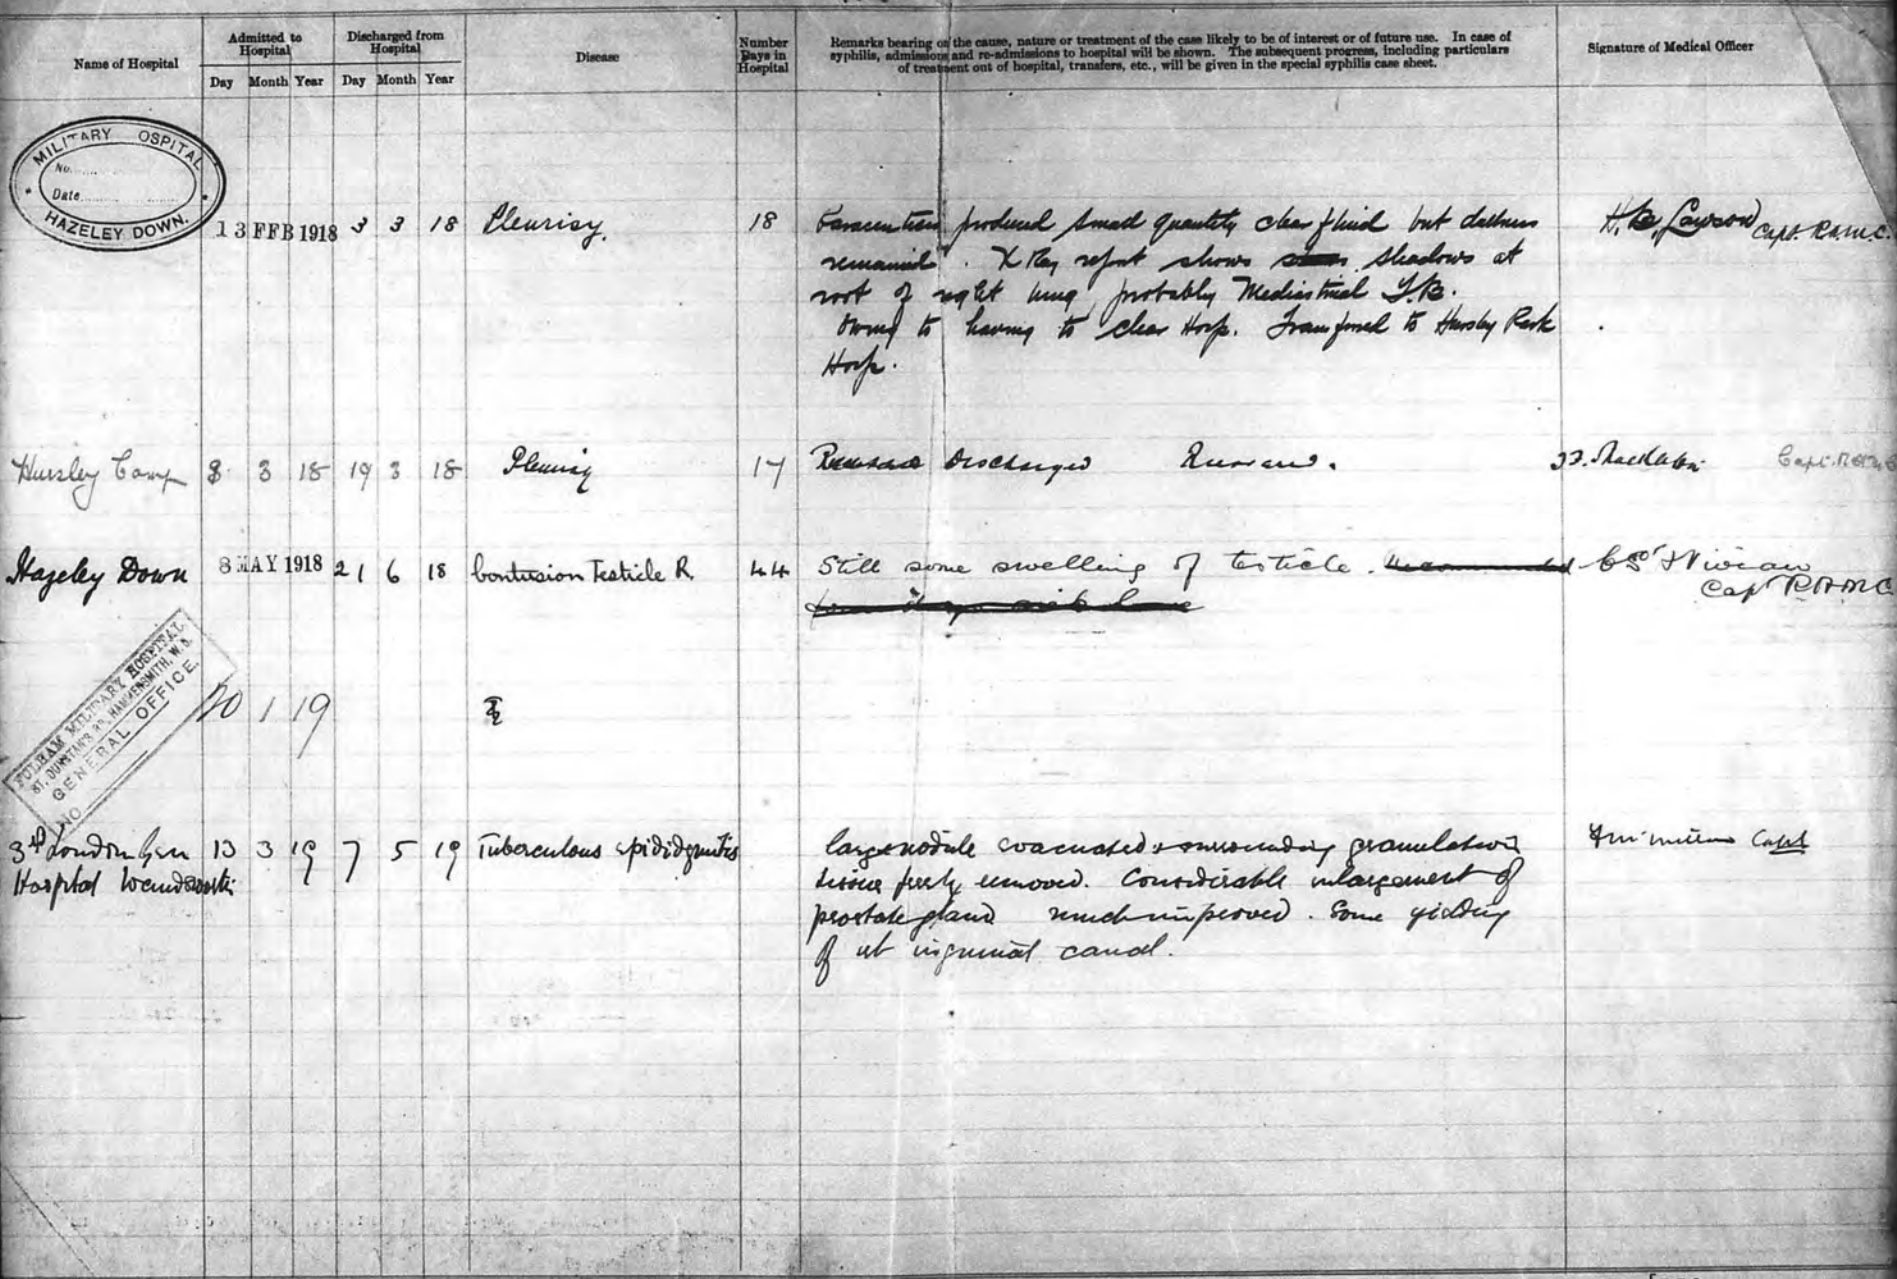 Name of Hospital
Admitted to Hospital
Day Month Year
Discharged from Hospital
Day Month Year
Disease
Number Days in Hospital
Remarks bearing on the cause, nature or treatment of the case likely to be of interest or of future use. In case of
syphilis, admissions and re-admissions to hospital will be shown. The subsequent progress, including particulars
of treatment out of hospital, transfers, etc., will be given in the special syphilis case sheet.
Signature of Medical Officer
MILITARY OSPITAL
No.
Date
HAZELEY DOWN.
13 FEB 1918 3 3 18 Pleurisy. 18 Paracentesis produced small quantity clear fluid but dullness
H. B. Lawson Capt. R.A.M.C.
remained. X Ray report shows shadows at
root of right lung, probably Mediastinal T.B.
Owing to having to clear Hosp. Transferred to Hursley Park
Hosp.
Hursley Camp 3 18 19 3 18 Pleurisy 17 Discharged Capt. R.A.M.C
Hazeley Down 8 MAY 1918 21 6 18 Contusion Testicle R. 44 Still some swelling of testicle. Vivian
Capt R.A.M.C
FULHAM MILITARY HOSPITAL
ST. DUNSTAN'S RD. HAMMERSMITH, W.6.
GENERAL OFFICE.
NO
20 1 19
3rd London Gen 13 3 19 7 5 19 Tuberculous epididymitis large nodule evacuated & surrounding granulation
Capt
Hospital Wandsworth tissue freely removed. Considerable enlargement of
prostate gland much improved. Some yielding
of inguinal canal.